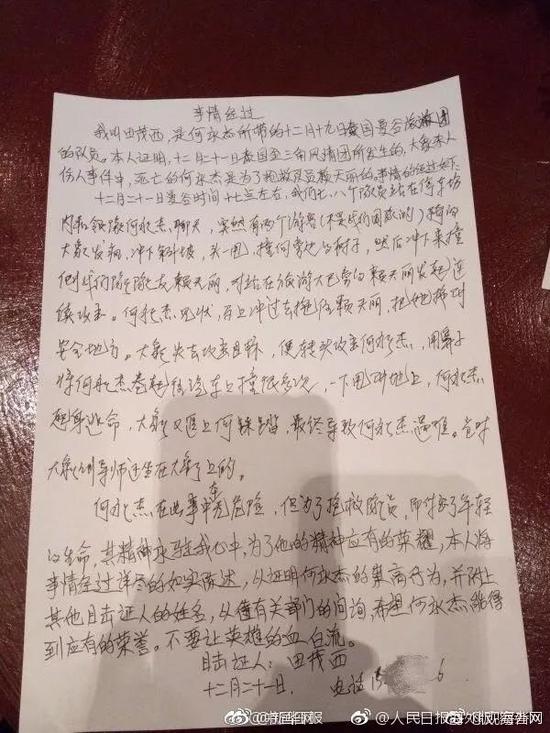 事情经过
我叫田茂西,是何永杰所带的十二月十九泰国曼谷旅游团
的队员。本人证明,十二月二十一日泰国金三角风情园所发生的,大象来人
伤人事件中,死亡的何永杰是为了抢救队员赖天丽的。事情的经过如下:
十二月二十一日曼谷时间十七点左右,我们七、八个队员站在停车场
内和领队何永杰聊天,突然有两个游客(不是我们团队的)骑的
大象发疯,冲下斜坡,头一甩,撞倒旁边的树子,然后冲下来撞
倒我们队友赖天丽,对站在旅游大巴旁的赖天丽发起连
续攻击。何永杰见状,马上冲过去拖住赖天丽,把她拖到
安全地方。大象失去攻击目标,便转头攻击何永杰,用鼻子
将何永杰卷起往汽车上撞很多次,一下甩到地上,何永杰
起身逃命,大象又追上何踩踏,最终导致何永杰遇难。当时
大象训导师还坐在大象上的。
何永杰在此事中危险,但为了抢救队员,却付出了年轻
的生命,其精神永驻我心中,为了他的精神应有的荣耀,本人将
事情经过详尽的如实陈述,以证明何永杰的崇高行为,并附上
其他目击证人的姓名,以备有关部门的问询,希望何永杰能得
到应有的荣誉。不要让英雄的血白流。
目击证人:田茂西
十二月二十一日. 电话 6
@新国网
@人民日报海外版观察者网